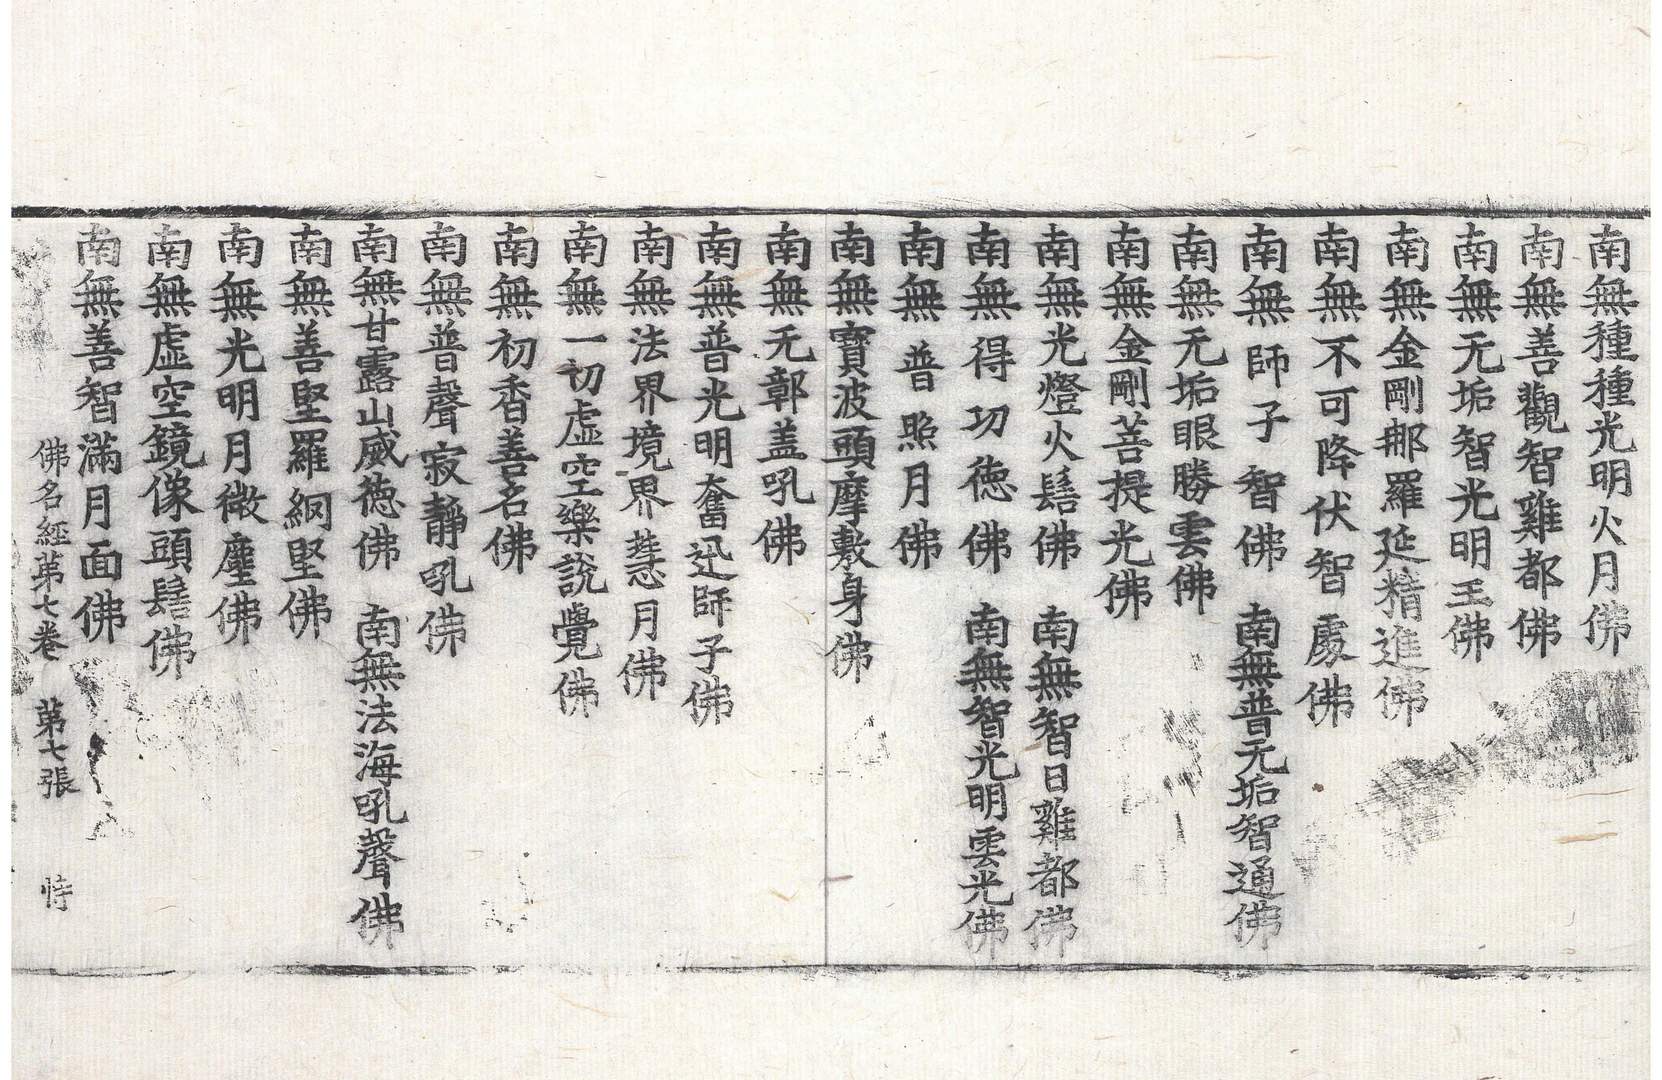 南無種種光明火月佛
南無善觀智雞都佛
南無无垢智光明王佛
南無金剛那羅延精進佛
南無不可降伏智處佛
南無師子智佛　南無普无垢智通佛
南無无垢眼勝雲佛
南無金剛菩提光佛
南無光燈火髻佛　南無智日雞都佛
南無得功德佛　南無智光明雲光佛
南無普照月佛
南無寶波頭摩敷身佛
南無无鄣盖吼佛
南無普光明奮迅師子佛
南無法界境界慧月佛
南無一切虛空樂說覺佛
南無初香善名佛
南無普聲寂靜吼佛
南無甘露山威德佛　南無法海吼聲佛
南無善堅羅網堅佛
南無光明月微塵佛
南無虛空鏡像頭髻佛
南無善智滿月面佛
佛名經第七卷　第七張　恃